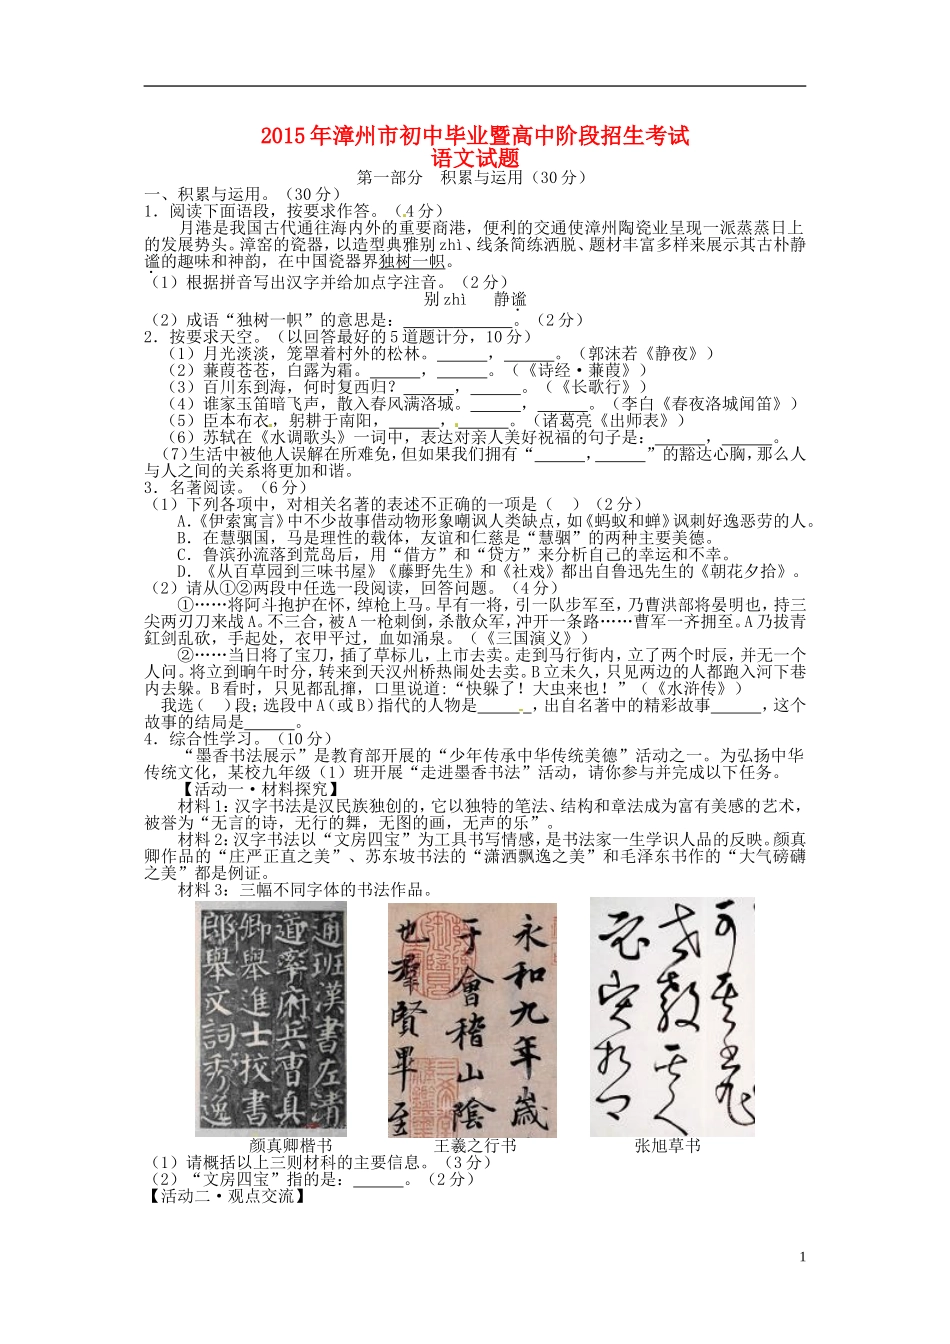 2015年漳州市初中毕业暨高中阶段招生考试
语文试题
第一部分 积累与运用（30分）
一、积累与运用。（30分）
1．阅读下面语段，按要求作答。（4分）
月港是我国古代通往海内外的重要商港，便利的交通使漳州陶瓷业呈现一派蒸蒸日上
的发展势头。漳窑的瓷器，以造型典雅别zhì、线条简练洒脱、题材丰富多样来展示其古朴静
谧的趣味和神韵，在中国瓷器界独树一帜。
（1）根据拼音写出汉字并给加点字注音。（2分）
别zhì 静谧
（2）成语“独树一帜”的意思是：____________。（2分）
2．按要求天空。（以回答最好的5道题计分，10分）
（1）月光淡淡，笼罩着村外的松林。______，______。（郭沫若《静夜》）
（2）蒹葭苍苍，白露为霜。______，______。（《诗经·蒹葭》）
（3）百川东到海，何时复西归？______，______。（《长歌行》）
（4）谁家玉笛暗飞声，散入春风满洛城。______，______。（李白《春夜洛城闻笛》）
（5）臣本布衣，躬耕于南阳，______，______。（诸葛亮《出师表》）
（6）苏轼在《水调歌头》一词中，表达对亲人美好祝福的句子是：______，______。
（7)生活中被他人误解在所难免,但如果我们拥有“______，______”的豁达心胸,那么人
与人之间的关系将更加和谐。
3．名著阅读。（6分）
（1）下列各项中，对相关名著的表述不正确的一项是（ ）（2分）
A．《伊索寓言》中不少故事借动物形象嘲讽人类缺点，如《蚂蚁和蝉》讽刺好逸恶劳的人。
B．在慧骃国，马是理性的载体，友谊和仁慈是“慧骃”的两种主要美德。
C．鲁滨孙流落到荒岛后，用“借方”和“贷方”来分析自己的幸运和不幸。
D．《从百草园到三味书屋》《藤野先生》和《社戏》都出自鲁迅先生的《朝花夕拾》。
（2）请从①②两段中任选一段阅读，回答问题。（4分）
①……将阿斗抱护在怀，绰枪上马。早有一将，引一队步军至，乃曹洪部将晏明也，持三
尖两刃刀来战A。不三合，被A一枪刺倒，杀散众军，冲开一条路……曹军一齐拥至。A乃拔青
釭剑乱砍，手起处，衣甲平过，血如涌泉。（《三国演义》）
②……当日将了宝刀，插了草标儿，上市去卖。走到马行街内，立了两个时辰，并无一个
人问。将立到晌午时分，转来到天汉州桥热闹处去卖。B立未久，只见两边的人都跑入河下巷
内去躲。B看时，只见都乱撺，口里说道：“快躲了！大虫来也！”（《水浒传》）
我选（ ）段；选段中A(或B)指代的人物是______，出自名著中的精彩故事______，这个
故事的结局是______。
4．综合性学习。（10分）
“墨香书法展示”是教育部开展的“少年传承中华传统美德”活动之一。为弘扬中华
传统文化，某校九年级（1）班开展“走进墨香书法”活动，请你参与并完成以下任务。
【活动一·材料探究】
材料1：汉字书法是汉民族独创的，它以独特的笔法、结构和章法成为富有美感的艺术，
被誉为“无言的诗，无行的舞，无图的画，无声的乐”。
材料2：汉字书法以“文房四宝”为工具书写情感，是书法家一生学识人品的反映。颜真
卿作品的“庄严正直之美”、苏东坡书法的“潇洒飘逸之美”和毛泽东书作的“大气磅礴
之美”都是例证。
材料3：三幅不同字体的书法作品。
通班漢書左清
道率府兵曹真
卿舉進士校書
郎舉文詞秀逸
永和九年歲
于會稽山陰
也羣賢畢至
颜真卿楷书 王羲之行书 张旭草书
（1）请概括以上三则材料的主要信息。（3分）
（2）“文房四宝”指的是：______。（2分）
【活动二·观点交流】
1